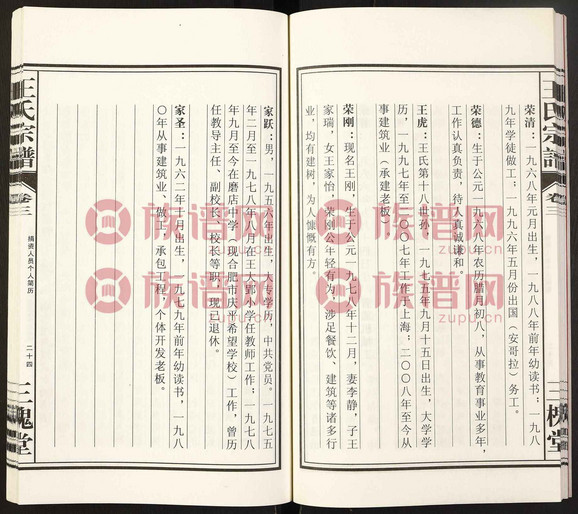 王氏宗譜
卷三
三槐堂
荣清：一九六八年元月出生，一九八八年前年幼读书；一九八
九年学徒做工；一九九六年五月份出国（安哥拉）务工。
荣德：生于公元一九六八年农历腊月初八，从事教育事业多年，
工作认真负责，待人真诚谦和。
王虎：王氏第十八世孙，一九七五年九月十五日出生，大学学
历，一九九七年至二〇〇七年工作于上海；二〇〇八年至今从
事建筑业（承建老板）。
荣刚：现名王刚，生于公元一九七八年十二月，妻李静，子王
家瑞，女王家怡，荣刚公年轻有为，涉足餐饮、建筑等诸多行
业，均有建树，为人慷慨有方。
家跃：男，一九五六年出生，大专学历，中共党员。一九七五
年二月至一九七八年八月在王大郢小学任教师工作；一九七八
年九月至今在磨店中学（现合肥市庆平希望学校）工作，曾历
任教导主任、副校长、校长等职，现已退休。
家圣：一九六二年十月出生，一九七九年前年幼读书，一九八
〇年从事建筑业、做工，承包工程，个体开发老板。
王氏宗譜
卷三
捐资人员个人简历
二十四
三槐堂
族谱网
zupu.cn
族谱网
zupu.cn